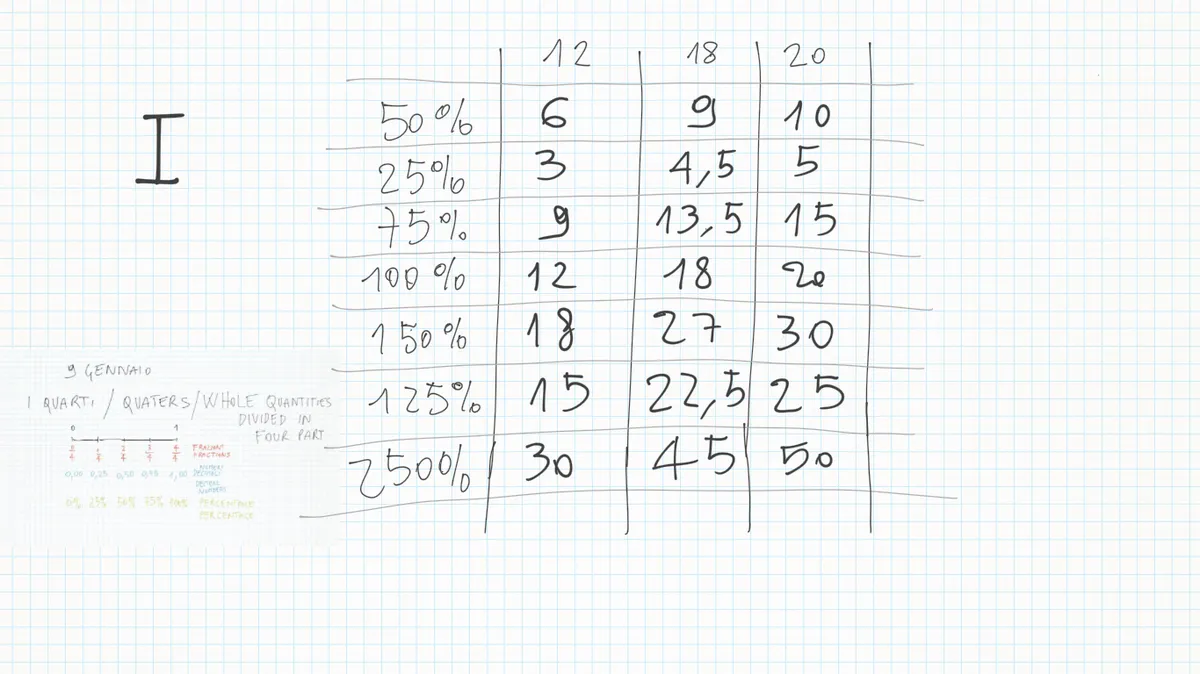 I
12 18 20
50% 6 9 10
25% 3 4,5 5
75% 9 13,5 15
100% 12 18 20
150% 18 27 30
125% 15 22,5 25
250% 30 45 50
9 GENNAIO
I QUARTI / QUATERS / WHOLE QUANTITIES
DIVIDED IN
FOUR PART
0 1
0/4 1/4 2/4 3/4 4/4 FRAZIONI
FRACTIONS
0,00 0,25 0,50 0,75 1,00 NUMERI
DECIMALI
DECIMAL
NUMBERS
0% 25% 50% 75% 100% PERCENTUALI
PERCENTAGE